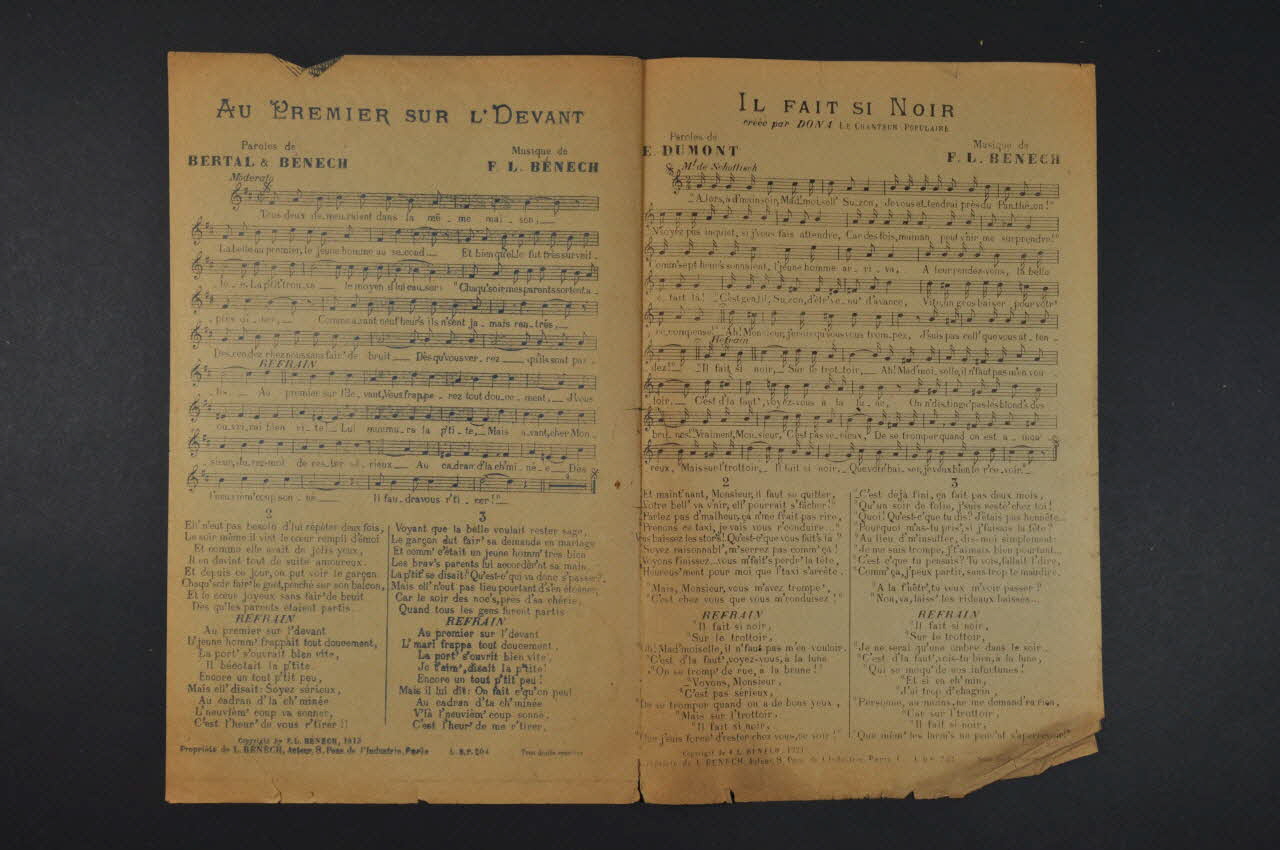 AU PREMIER SUR L'DEVANT
Paroles de
BERTAL & BÉNECH
Musique de
F. L. BÉNECH
Moderato
Tous deux de_meu_raient dans la mê _ me mai _ son,
La belle au premier, le jeune homme au se_cond Et bien qu'elle fut très surveil_
lé _ e, La p'tit' trou_va le moyen d'lui cau_ser: "Chaqu' soir mes parents sortent a_
près dî_ner, Comme avant neuf heur's ils n'sent ja_mais ren_trés,
Des_cendez chez nous sans fair' de bruit Dès qu'vous ver_rez qu'ils sont par_
tis. REFRAIN Au premier sur l'de_vant, Vous frappe_rez tout dou_ce_ment, J'vous
ou_vri_rai bien vi_te! Lui murmu_ra la p'ti_te, Mais a_vant, cher Mon_
sieur, ju_rez-moi de res_ter sé_rieux Au ca_dran d'la ch'mi_né_e Dès
l'neuvièm' coup son_né Il fau_dra vous r'ti_rer!"
2
Ell' n'eut pas besoin d'lui répéter deux fois,
Le soir même il vint le cœur rempli d'émoi
Et comme elle avait de jolis yeux,
Il en devint tout de suite amoureux.
Et depuis ce jour, on put voir le garçon
Chaqu' soir fair' le guet, penché sur son balcon,
Et le cœur joyeux sans fair' de bruit
Dès qu'les parents étaient partis
REFRAIN
Au premier sur l'devant
L'jeune homm' frappait tout doucement,
La port' s'ouvrait bien vite,
Il bécotait la p'tite.
Encore un tout p'tit peu,
Mais ell' disait: Soyez sérieux,
Au cadran d'la ch'minée
L'neuvièm' coup va sonner,
C'est l'heur' de vous r'tirer!!
3
Voyant que la belle voulait rester sage,
Le garçon dut fair' sa demande en mariage
Et comm' c'était un jeune homm' très bien
Les brav's parents lui accordèr'nt sa main.
La p'tit' se disait: Qu'est-c' qui va donc s'passer?
Mais ell' n'eut pas lieu pourtant d's'en étonner,
Car le soir des noc's, près d'sa chérie,
Quand tous les gens furent partis
REFRAIN
Au premier sur l'devant
L'mari frappa tout doucement.
La port' s'ouvrit bien vite,
Je t'aim', disait la p'tite!
Encore un tout p'tit peu!
Mais il lui dit: On fait c'qu'on peut
Au cadran d'la ch'minée
V'là l'neuvièm' coup sonné,
C'est l'heur' de me r'tirer.
Copyright by F. L. BENECH, 1913
Propriété de L. BENECH, Auteur, 8, Pass. de l'Industrie, Paris L. B. P. 204 Tous droits réservés
IL FAIT SI NOIR
créée par DONA LE CHANTEUR POPULAIRE
Paroles de
E. DUMONT
Musique de
F. L. BENECH
Mt de Schottisch
"A_lors, à d'main soir, Mad'moi_sell' Su_zon, Je vous at_tendrai près du Pan_thé_on!"
"N'soyez pas inquiet, si j'vous fais attendre, Car des fois, maman peut v'nir me surprendre!"
Comm' sept heur's sonnaient, l'jeune homme ar_ri_va, A leur rendez-vous, la belle
é_tait là! "C'est gen_til, Su_zon, d'êtr' ve_nu' d'avance, Vite, un gros baiser pour vôtr'
ré_compense!" "Ah! Monsieur, je crois qu'vous vous trom_pez, J'suis pas cell' que vous at_ten_
dez!" Refrain "Il fait si noir, Sur le trot_toir, Ah! Mad'moi_selle, il n'faut pas m'en vou_
loir, C'est d'la faut', voyez-vous à la lu_ne, On n'dis_tingu' pas les blond's des
bru_nes! "Vraiment, Mon_sieur, C'est pas sé_rieux, De se tromper quand on est a_mou_
reux, "Mais sur l'trottoir, Il fait si noir, Que votr' bai_ser, je veux bien le r'ce_voir."
2
"Et maint'nant, Monsieur, il faut se quitter,
Votre bell' va v'nir, ell' pourrait s'fâcher!"
"Parlez pas d'malheur, ça n'me f'rait pas rire,
"Prenons ce taxi, je vais vous r'conduire..."
"Vous baissez les stor's! Qu'est-c' que vous fait's là?
"Soyez raisonnabl', m'serrez pas comm' ça!
"Voyons finissez... vous m'fait's perdr' la tête,
"Heureus'ment pour moi que l'taxi s'arrête.
"Mais, Monsieur, vous m'avez trompé',
"C'est chez vous que vous m'conduisez!"
REFRAIN
"Il fait si noir,
"Sur le trottoir,
"Ah! Mad'moiselle, il n'faut pas m'en vouloir.
"C'est d'la faut', voyez-vous, à la lune
"On se tromp' de rue, à la brune!"
"Voyons, Monsieur,
"C'est pas sérieux,
"De se tromper quand on a de bons yeux,
"Mais sur l'trottoir
"Il fait si noir,
"Que j'suis forcé' d'rester chez vous, ce soir!"
3
"C'est déjà fini, ça fait pas deux mois,
"Qu'un soir de folie, j'suis resté' chez toi!
"Quoi! Qu'est-c' que tu dis? J'étais pas honnête...
"Pourquoi m'as-tu pris', si j'faisais la fête?
"Au lieu d'm'insulter, dis-moi simplement:
"Je me suis trompé, j't'aimais bien pourtant...
"C'est c'que tu pensais? Tu vois, fallait l'dire,
"Comm' ça, j'peux partir, sans trop te maudire.
"A la f'nêtr', tu veux m'voir passer?
"Non, va, laiss' les rideaux baissés...
REFRAIN
"Il fait si noir,
"Sur le trottoir,
"Je ne serai qu'une ombre dans le soir...
"C'est d'la faut', vois-tu bien, à la lune,
"Qui se moqu' de nos infortunes!
"Et si en ch'min,
"J'ai trop d'chagrin,
"Personne, au moins, ne me demand'ra rien,
"Car sur l'trottoir
"Il fait si noir,
"Que même les larm's ne peuv'nt s'apercevoir!"
Copyright by F. L. BENECH, 1921
Propriété de L. BENECH, Auteur, 8, Pass. de l'Industrie, Paris